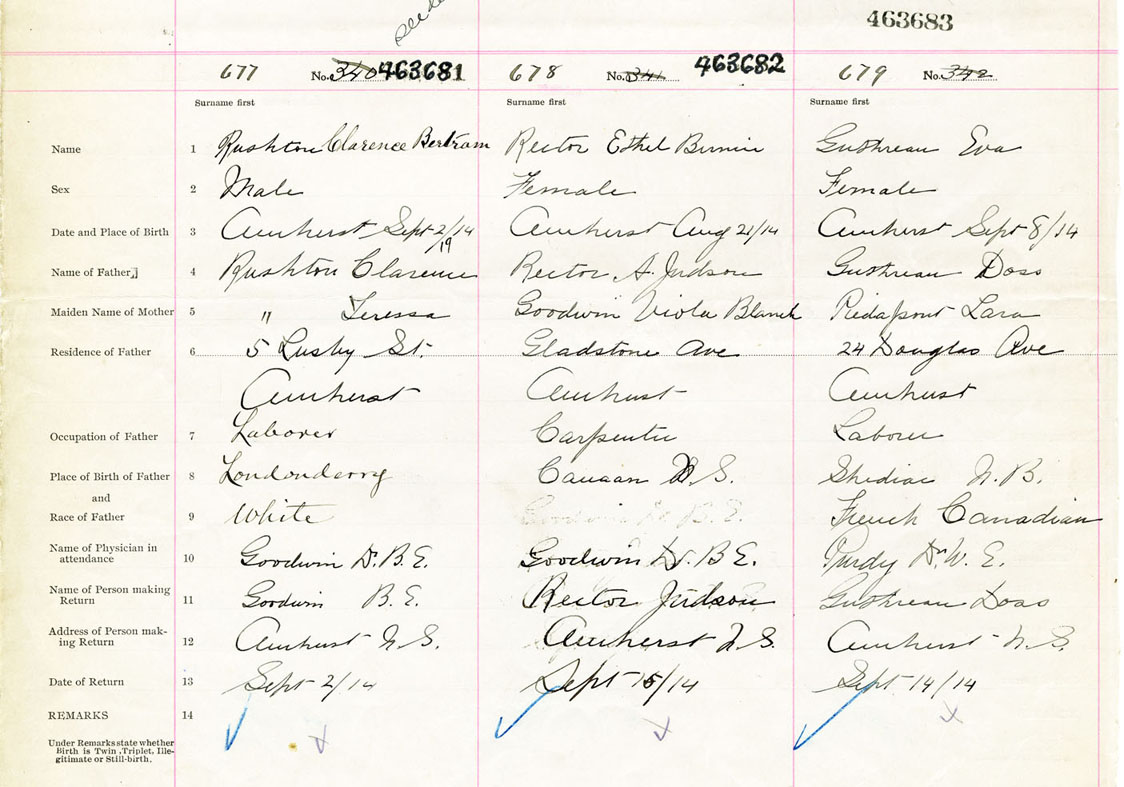 463683
677 No. 340 463681 678 No. 341 463682 679 No. 342
Surname first Surname first Surname first
Name 1 Rushton Clarence Bertram Rector Ethel Gushreau Eva
Sex 2 Male Female Female
Date and Place of Birth 3 Amherst Sept 2/14 Amherst Aug 21/14 Amherst Sept 8/14
19
Name of Father 4 Rushton Clarence Rector A. Judson Gushreau Doss
Maiden Name of Mother 5 " Teressa Goodwin Viola Blanch Lara
Residence of Father 6 5 Lusby St. Gladstone Ave 24 Douglas Ave
Amherst Amherst Amherst
Occupation of Father 7 Laborer Carpenter Laborer
Place of Birth of Father 8 Londonderry Canaan N.S. Shediac N.B.
and
Race of Father 9 White French Canadian
Name of Physician in
attendance 10 Goodwin Dr. B.E. Goodwin Dr. B E. Purdy Dr. W. E.
Name of Person making
Return 11 Goodwin B.E. Rector Judson Gushreau Doss
Address of Person mak-
ing Return 12 Amherst N.S. Amherst N.S. Amherst N.S.
Date of Return 13 Sept 2/14 Sept 15/14 Sept 14/14
REMARKS 14
Under Remarks state whether
Birth is Twin, Triplet, Ille-
gitimate or Still-birth.